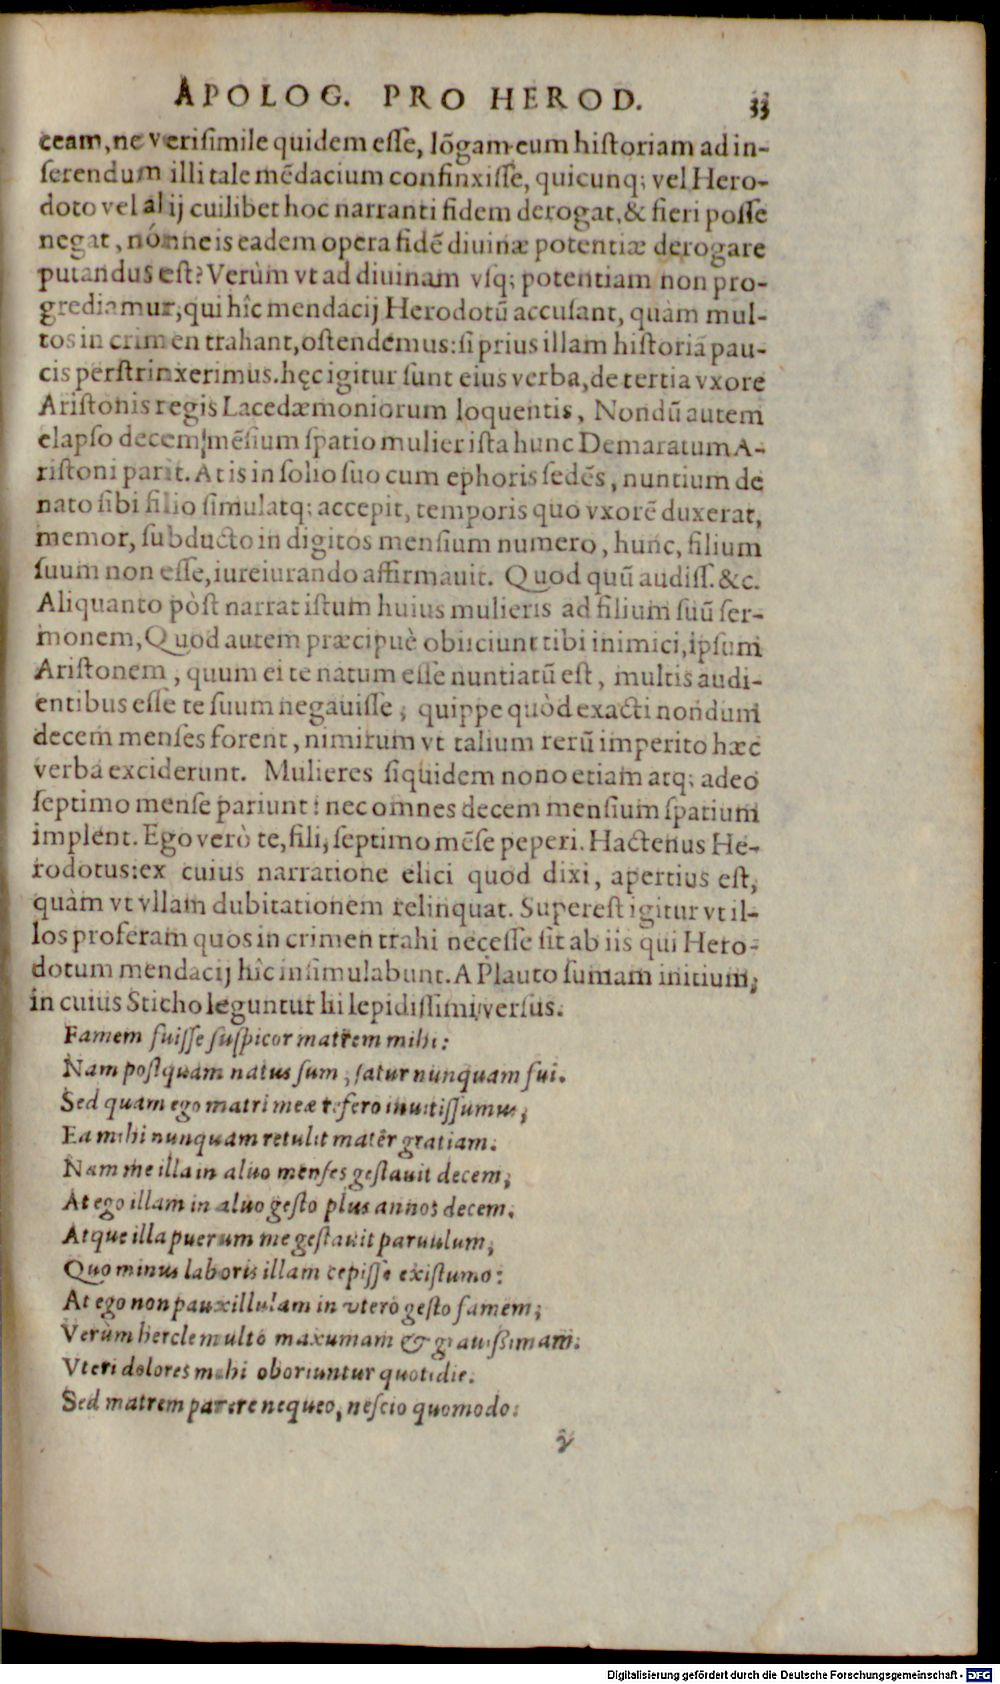 APOLOG. PRO HEROD. 33
ceam, ne verisimile quidem esse, lõgam eum historiam ad in-
serendum illi tale mẽdacium confinxisse, quicunq; vel Hero-
doto vel alij cuilibet hoc narranti fidem derogat, & fieri posse
negat, nónne is eadem opera fidẽ diuinæ potentiæ derogare
putandus est? Verùm vt ad diuinam vsq; potentiam non pro-
grediamur, qui hîc mendacij Herodotũ accusant, quàm mul-
tos in crimen trahant, ostendemus: si prius illam historiã pau-
cis perstrinxerimus. hęc igitur sunt eius verba, de tertia vxore
Aristonis regis Lacedæmoniorum loquentis, Nondũ autem
elapso decem mẽsium spatio mulier ista hunc Demaratum A-
ristoni parit. At is in solio suo cum ephoris sedẽs, nuntium de
nato sibi filio simulatq; accepit, temporis quo vxorẽ duxerat,
memor, subducto in digitos mensium numero, hunc, filium
suum non esse, iureiurando affirmauit. Quod quũ audiss. &c.
Aliquanto pòst narrat istum huius mulieris ad filium suũ ser-
monem, Quod autem præcipuè obiiciunt tibi inimici, ipsum
Aristonem, quum ei te natum esse nuntiatũ est, multis audi-
entibus esse te suum negauisse, quippe quòd exacti nondum
decem menses forent, nimirum vt talium rerũ imperito hæc
verba exciderunt. Mulieres siquidem nono etiam atq; adeo
septimo mense pariunt: nec omnes decem mensium spatium
implent. Ego verò te, fili, septimo mẽse peperi. Hactenus He-
rodotus: ex cuius narratione elici quod dixi, apertius est,
quàm vt vllam dubitationem relinquat. Superest igitur vt il-
los proferam quos in crimen trahi necesse sit ab iis qui Hero-
dotum mendacij hîc insimulabunt. A Plauto sumam initium,
in cuius Sticho leguntur hi lepidissimi versus.
Famem fuisse suspicor matrem mihi:
Nam postquam natus sum, satur nunquam fui.
Sed quam ego matri meæ refero inuitissumus,
Ea mihi nunquam retulit mater gratiam.
Nam me illa in aluo menses gestauit decem,
At ego illam in aluo gesto plus annos decem.
Atque illa puerum me gestauit paruulum,
Quo minus laboris illam cepisse existumo:
At ego non pauxillulam in vtero gesto famem,
Verùm hercle multò maxumam & grauissimam.
Vteri dolores mihi oboriuntur quotidie.
Sed matrem parere nequeo, nescio quomodo:
Digitalisierung gefördert durch die Deutsche Forschungsgemeinschaft - DFG